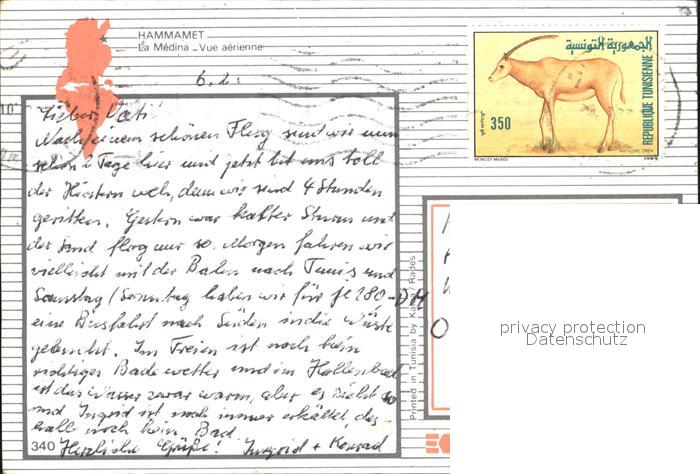 HAMMAMET
La Médina - Vue aérienne
6.2.
الجمهورية التونسية
350
REPUBLIQUE TUNISIENNE
MONCEF MANSI
ANTILOPE ORYX
Lieber Vati!
Nach einem schönen Flug sind wir nun
schon 2 Tage hier und jetzt tut uns toll
der Hintern weh, denn wir sind 4 Stunden
geritten. Gestern war kalter Sturm und
der Sand flog nur so. Morgen fahren wir
vielleicht mit der Bahn nach Tunis und
Samstag/Sonntag haben wir für je 180 - DM
eine Busfahrt nach Süden in die Wüste
gebucht. Im Freien ist noch kein
richtiges Badewetter und im Hallenbad
ist das Wasser zwar warm, aber es zieht so
und Ingrid ist noch immer erkältet, des
halb noch kein Bad.
Herzliche Grüße! Ingrid + Konrad
340
Printed in Tunisia by Rades
privacy protection
Datenschutz